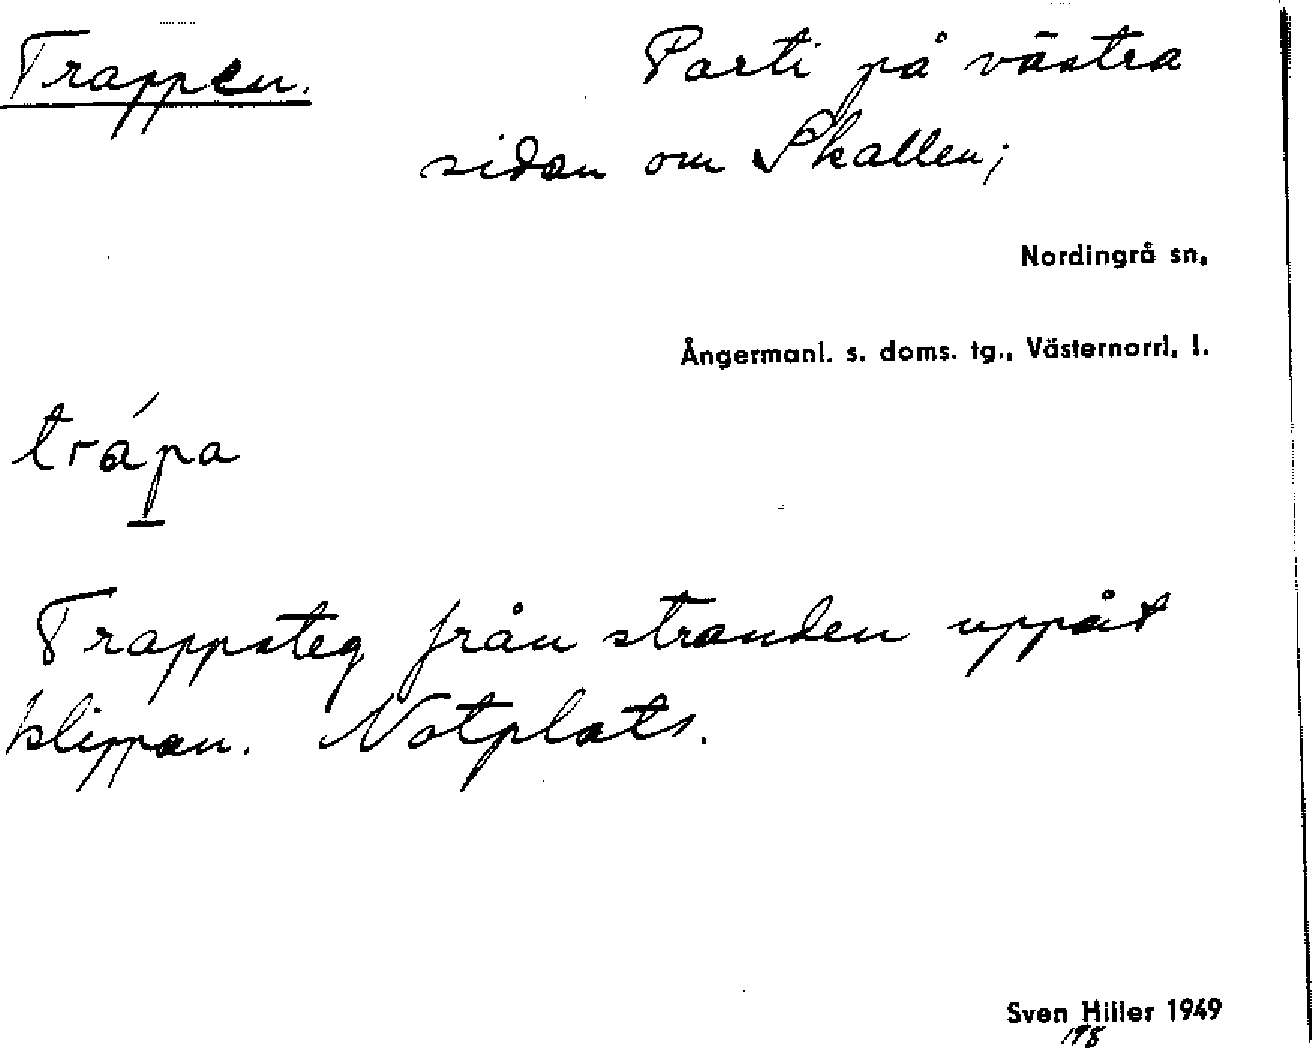 Trappen. Parti på västra
sidan om Skallen;
Nordingrå sn,
Ångermanl. s. doms. tg., Västernorrl. l.
trápa
Trappsteg från stranden uppåt
klippan. Notplats.
Sven Hiller 1949
198